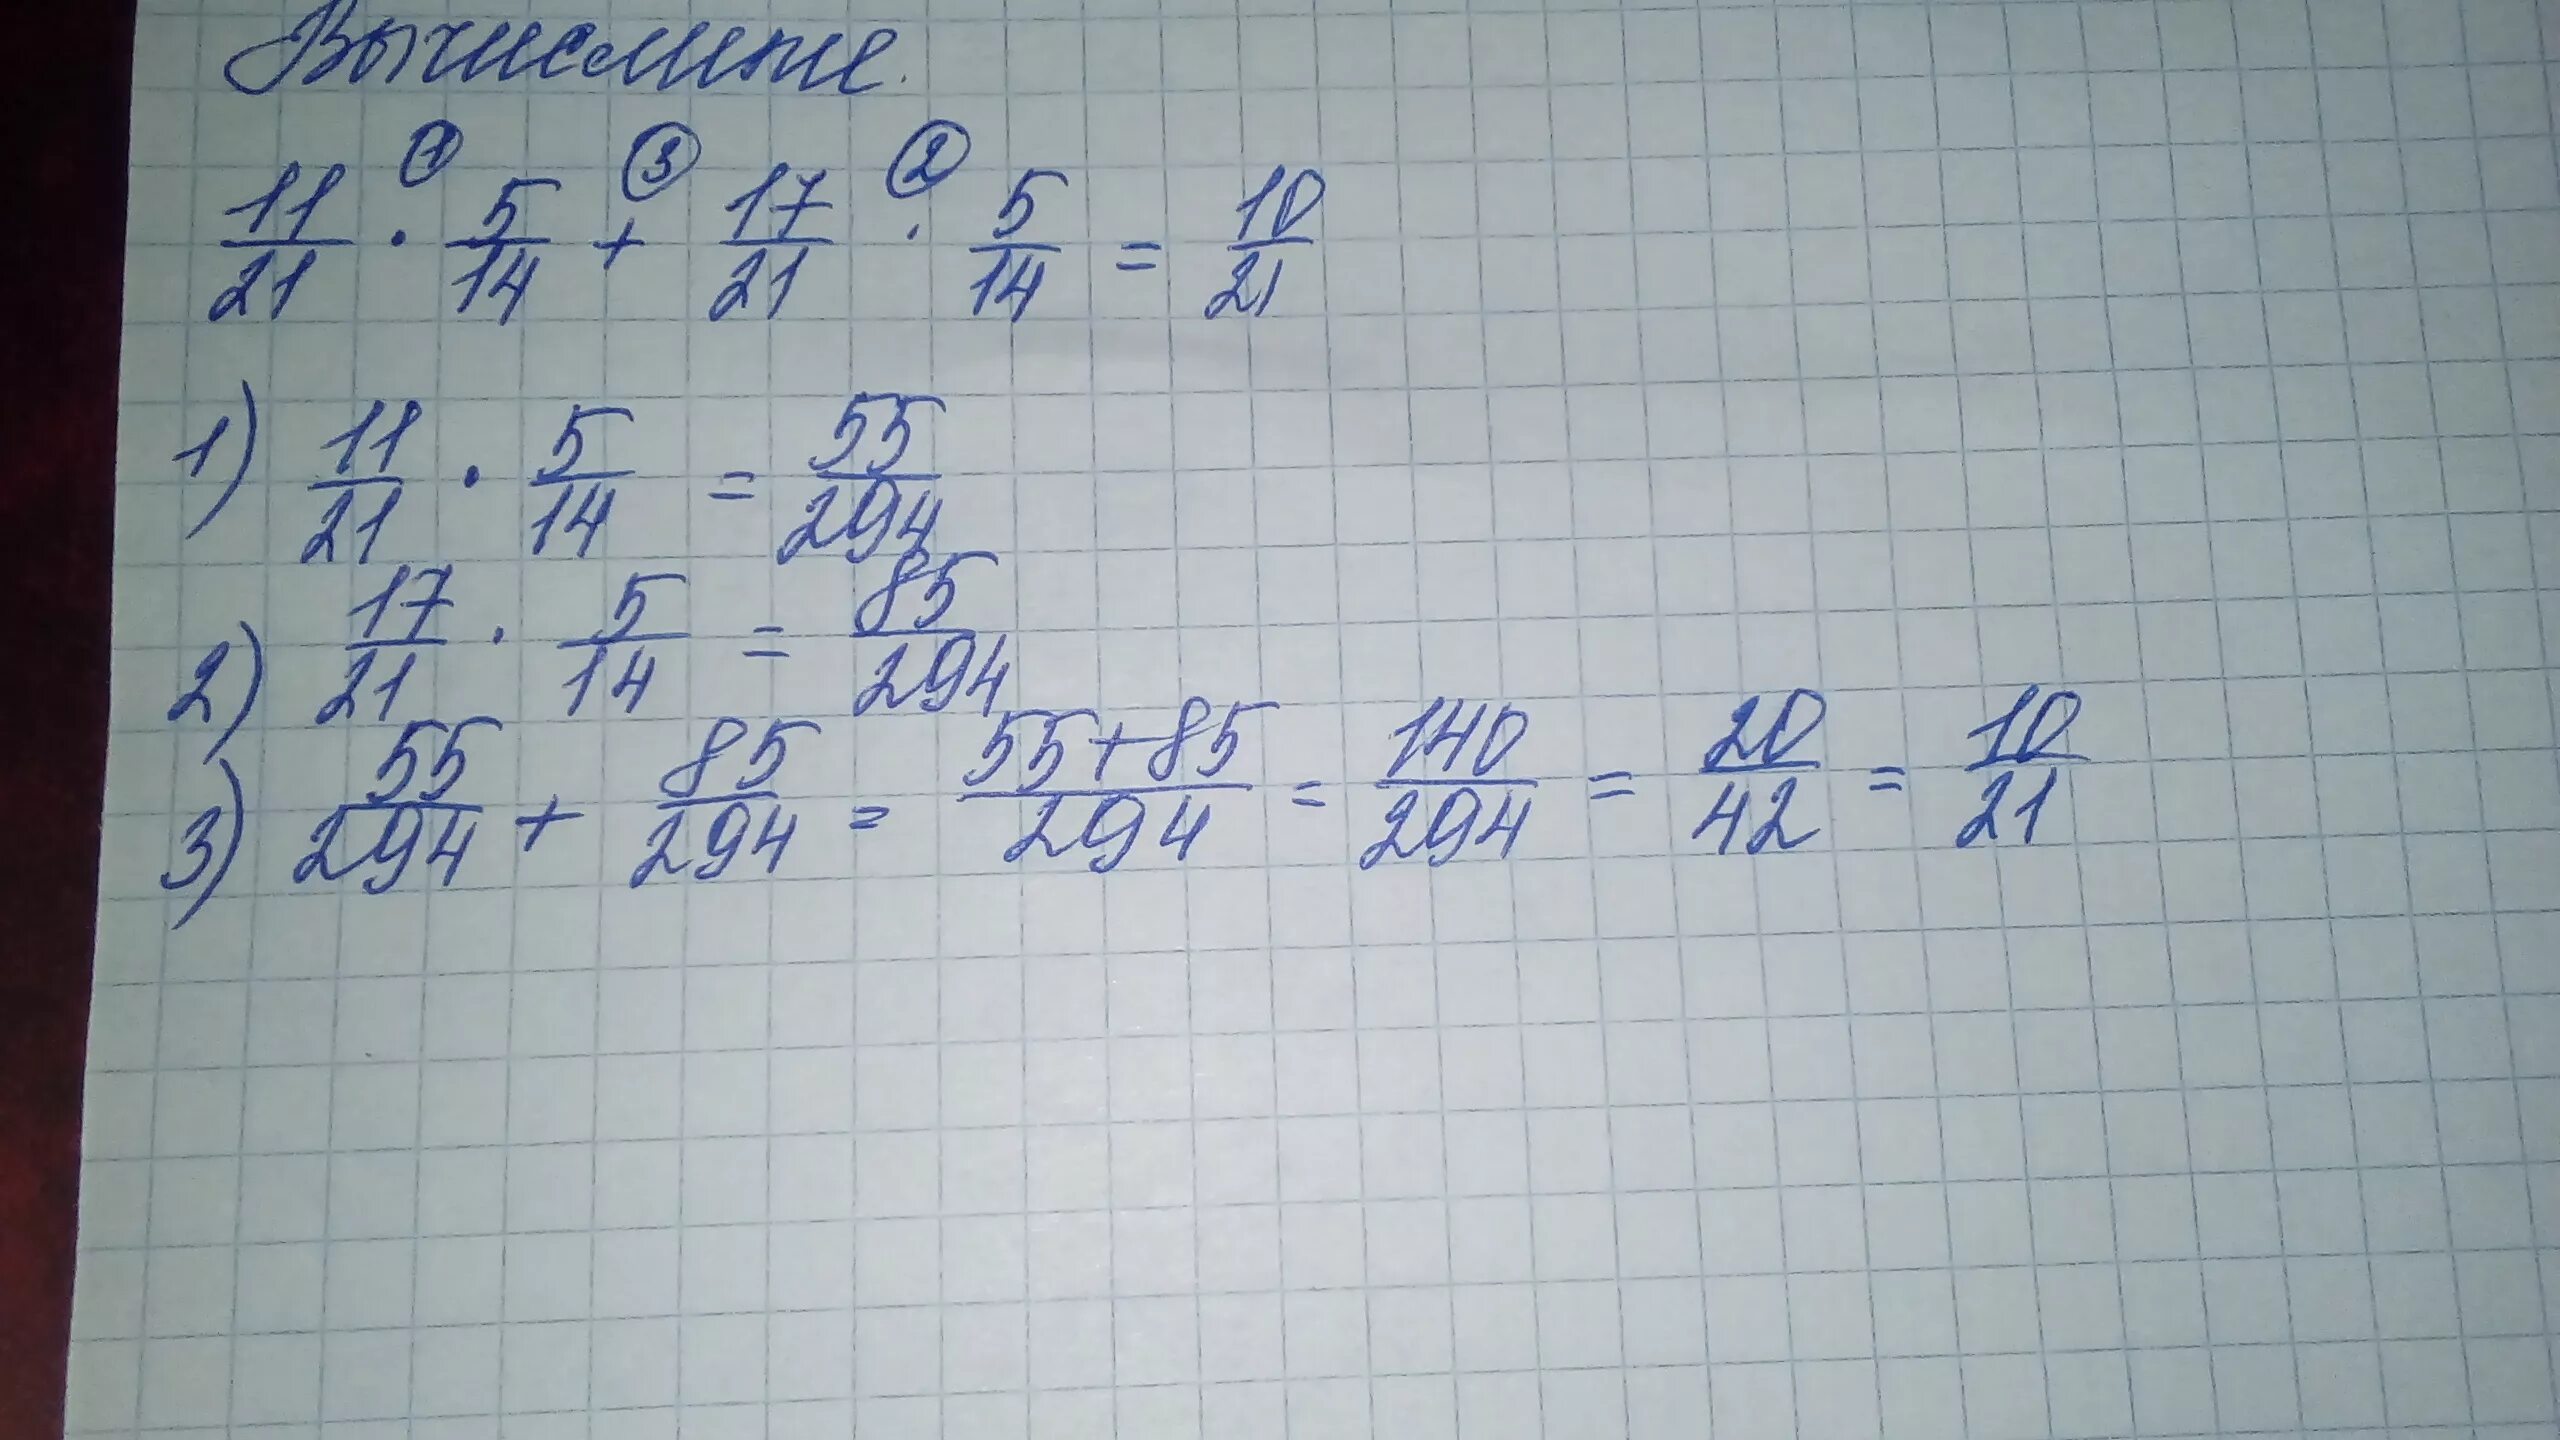 Вычислите.
① ③ ②
11/21 · 5/14 + 17/21 · 5/14 = 10/21
1) 11/21 · 5/14 = 55/294
2) 17/21 · 5/14 = 85/294
3) 55/294 + 85/294 = 55+85/294 = 140/294 = 20/42 = 10/21